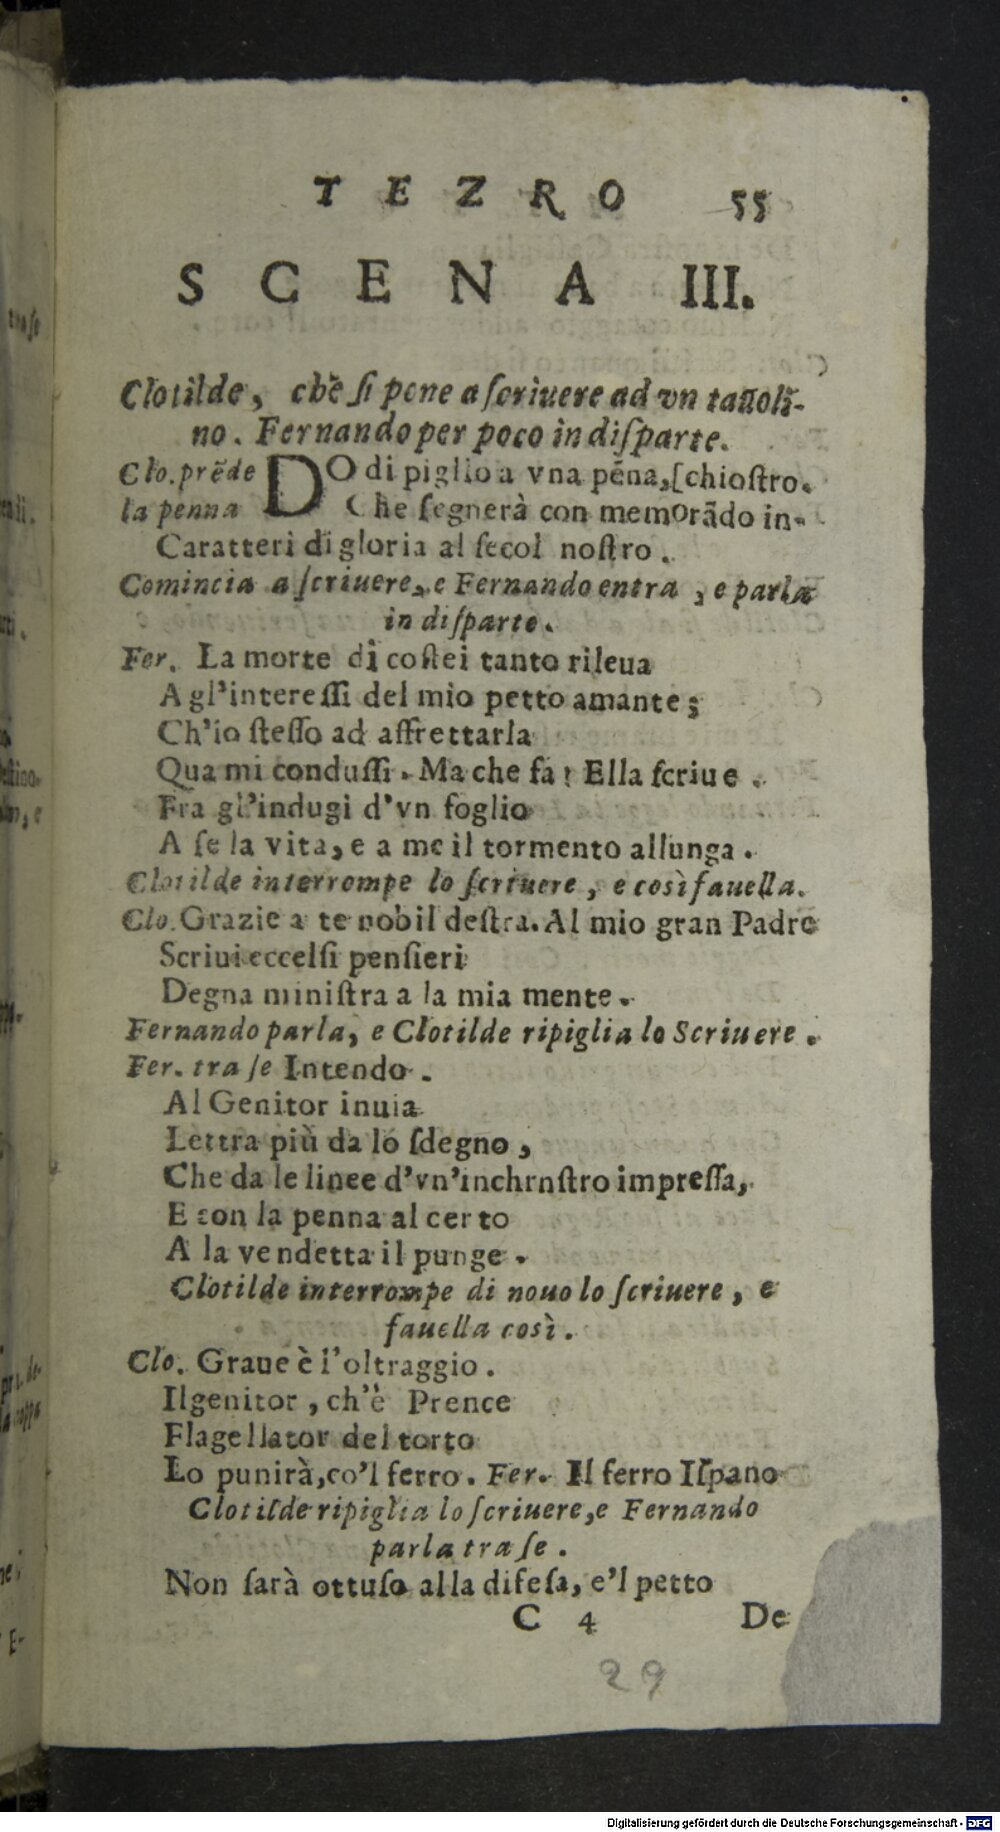 TEZRO 55
SCENA III.
Clotilde, chè ſi pone a ſcriuere ad vn tauoli-
no. Fernando per poco in diſparte.
Clo. prẽde DO di piglio a vna pẽna, [chioſtro.
la penna Che ſegnerà con memorãdo in-
Caratteri di gloria al ſecol noſtro.
Comincia a ſcriuere, e Fernando entra, e parla
in diſparte.
Fer. La morte di coſtei tanto rileua
A gl'intereſſi del mio petto amante;
Ch'io ſteſſo ad affrettarla
Qua mi conduſſi. Ma che fa? Ella ſcriue.
Fra gl'indugi d'vn foglio
A ſe la vita, e a me il tormento allunga.
Clotilde interrompe lo ſcriuere, e così fauella.
Clo. Grazie a te nobil deſtra. Al mio gran Padre
Scriui eccelſi penſieri
Degna miniſtra a la mia mente.
Fernando parla, e Clotilde ripiglia lo Scriuere.
Fer. tra ſe Intendo.
Al Genitor inuia
Lettra più da lo ſdegno,
Che da le linee d'vn'inchrnſtro impreſſa,
E con la penna al certo
A la vendetta il punge.
Clotilde interrompe di nouo lo ſcriuere, e
fauella così.
Clo. Graue è l'oltraggio.
Il genitor, ch'è Prence
Flagellator del torto
Lo punirà, co'l ferro. Fer. Il ferro Iſpano
Clotilde ripiglia lo ſcriuere, e Fernando
parla tra ſe.
Non ſarà ottuſo alla difeſa, e'l petto
C 4 De
29
Digitalisierung gefördert durch die Deutsche Forschungsgemeinschaft - DFG